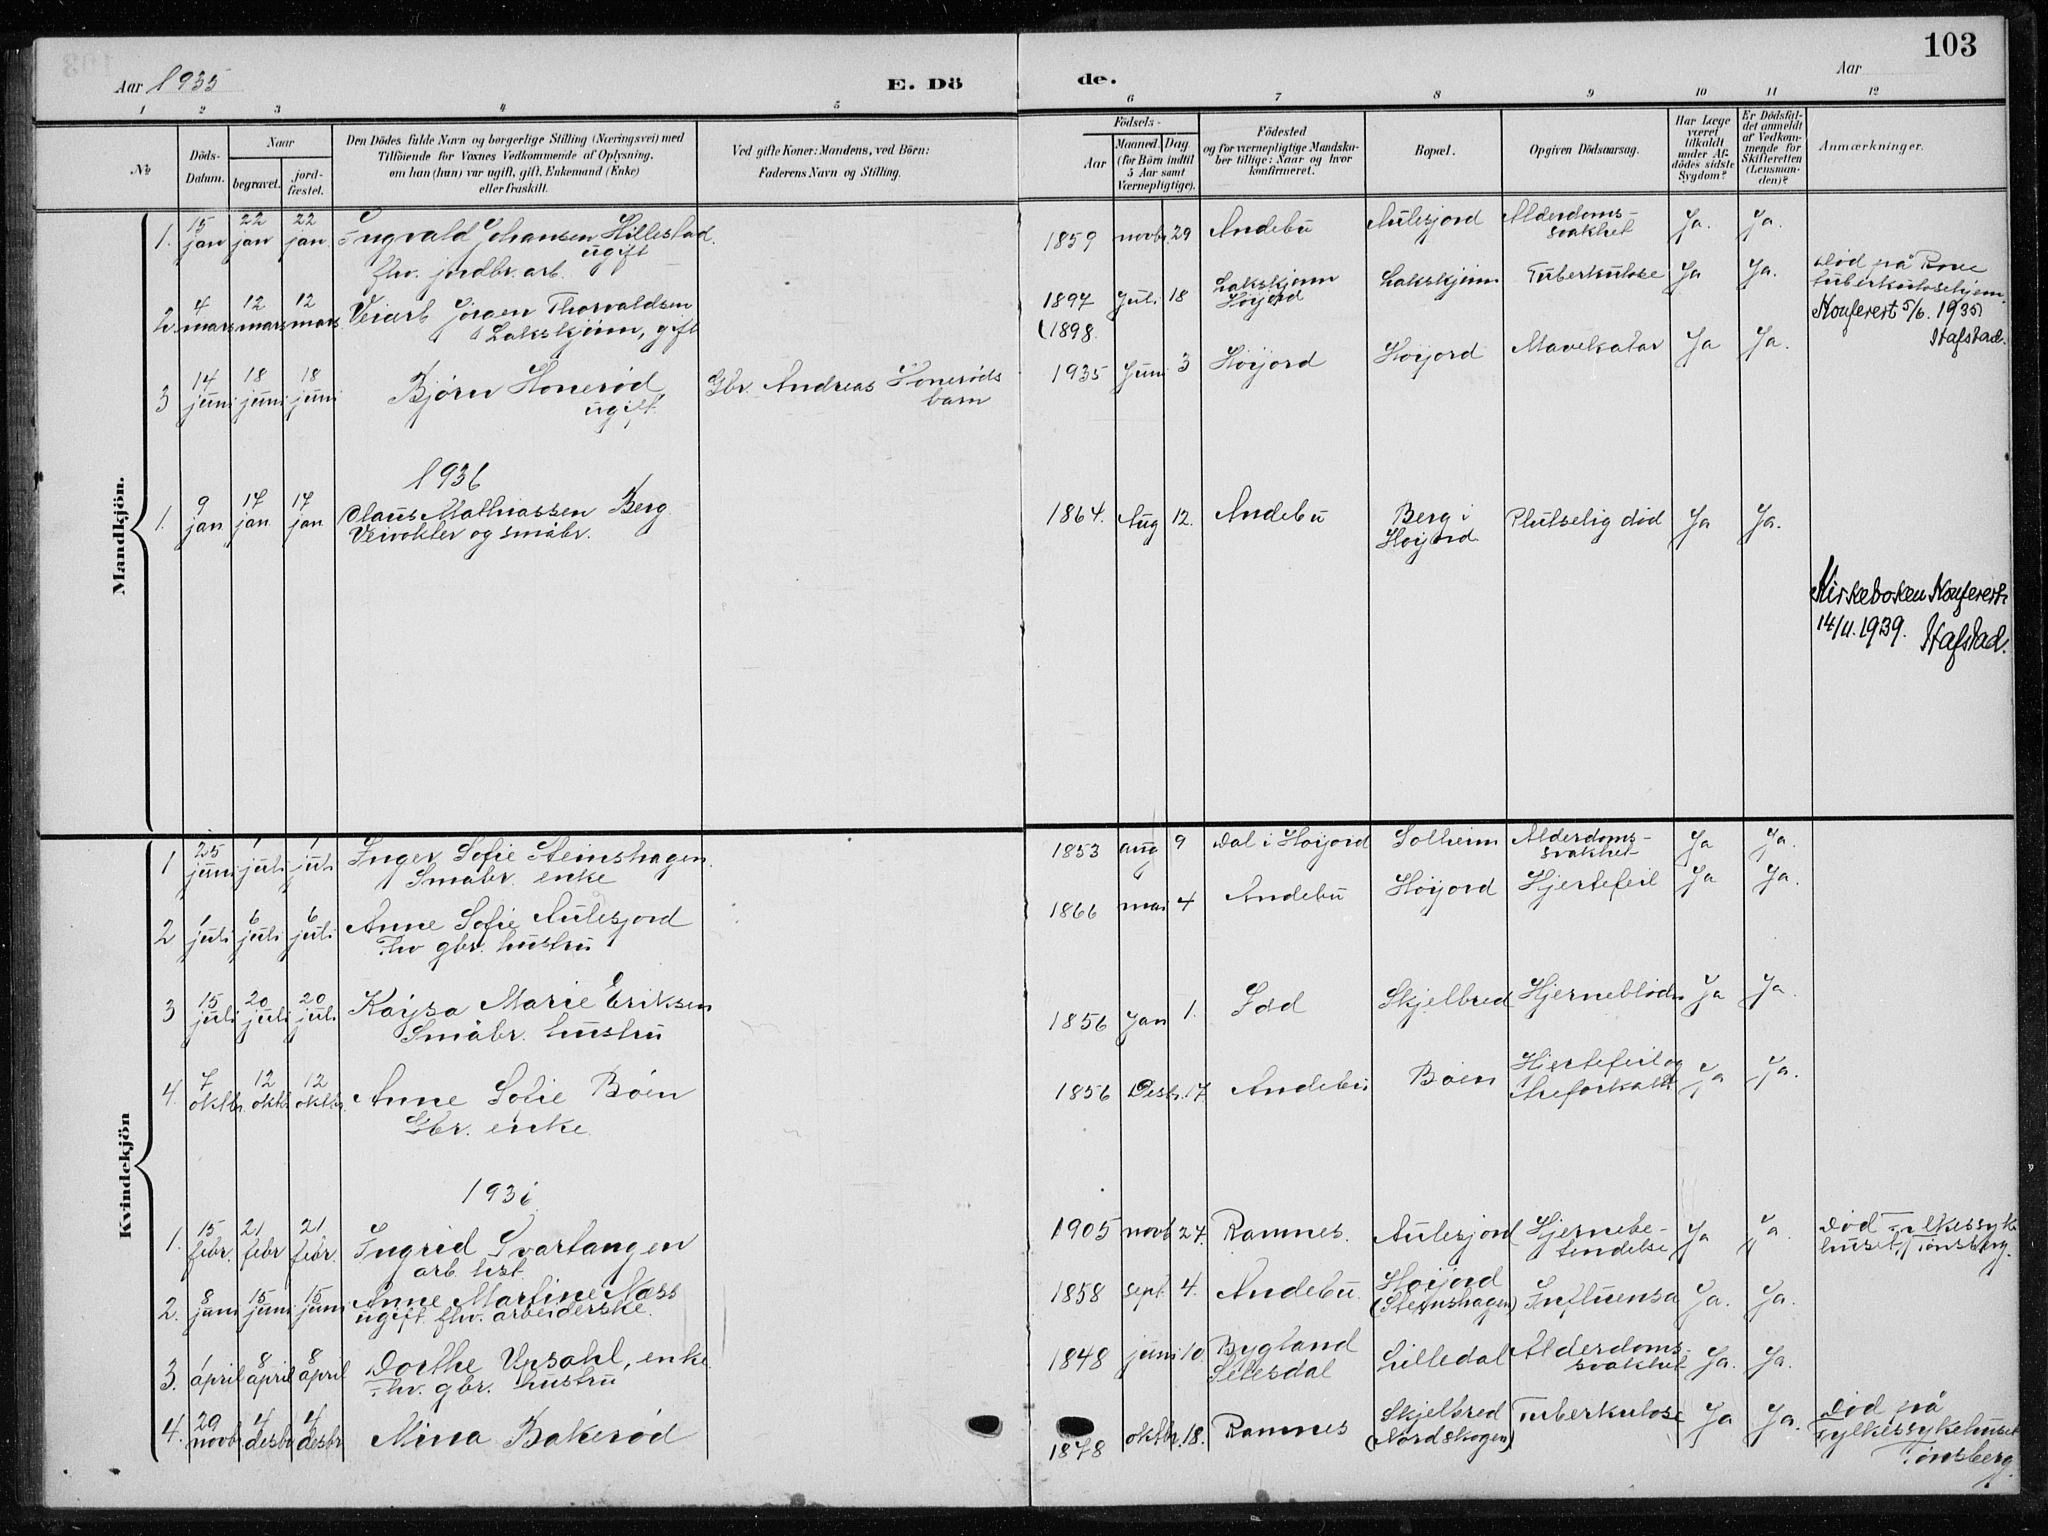 103
Aar 1935
E. Dö
de.
Aar
1 2 3 4 5 6 7 8 9 10 11 12
No
Döds-
Datum.
Naar
begravet.
jord-
fæstet.
Den Dödes fulde Navn og borgerlige Stilling (Næringsvei) med
Tilföiende for Voxnes Vedkommende af Oplysning,
om han (hun) var ugift, gift, Enkemand (Enke)
eller fraskilt.
Ved gifte Koner: Mandens, ved Börn:
Faderens Navn og Stilling.
Födsels-
Aar
Maaned. Dag
(for Börn indtil
5 Aar samt
Værnepligtige).
Födested
og for værnepligtige Mandska-
ber tillige: Naar og hvor
konfirmeret.
Bopæl.
Opgiven Dödsaarsag.
Har Læge
været
tilkaldt
under Af-
dödes sidste
Sygdom?
Er Dödsfal-
det anmeldt
af Vedkom-
mende for
Skifteretten
(Lensman-
den)?
Anmærkninger.
Mandkjön.
1. 15 jan 22 jan 22 jan Ingvald Johansen Hillestad. 1859 novbr 29 Andebu Aulesjord Alderdoms- Ja. Ja.
ugift svakhet
fhv. jordbr. arb.
2 4 mars 12 mars 12 mars Veiarb Jörgen Thorvaldsen 1897 Juli 18 Lakskjönn Lakskjönn Tuberkulose Ja Ja. Död på
Lakskjönn, gift (1898. Höijord tuberkulosehjem.
Konferert 5/6. 1935
Hafstad.
3 14 juni 18 juni 18 juni Bjørn Honerød Gbr. Andreas Honerøds 1935 Juni 3 Höijord Höijord Mavekatar Ja Ja.
ugift. barn
1936
1. 9 jan 17 jan 17 jan Claus Mathiassen Berg 1864. Aug 12. Andebu Berg i Plutselig död Ja Ja.
Veivokter og småbr. Höijord.
Kirkeboken Konferert
14/11. 1939. Hafstad.
Kvindekjön
1 25 juni 1 juli 1 juli Inger Sofie Steinshagen. 1853 aug 9 Dal i Höijord Solheim Alderdoms- Ja Ja.
Småbr. enke svakhet
2 1 juli 6 juli 6 juli Anne Sofie Aulesjord 1866 mai 4 Andebu Höijord Hjertefeil Ja Ja.
Fhv gbr. hustru
3 15 juli 20 juli 20 juli Kaisa Marie Eriksen 1856 Jan 1. Skjelbred Ja Ja.
Småbr. hustru
4. 7 oktbr. 12 oktb. 12 oktbr. Anne Sofie Böen 1856 Desbr. 17. Andebu Böen Hjertefeil og Ja Ja.
Gbr. enke. Areforkalk
1936
1. 15 febr. 21 febr 21 febr. Ingrid Svartangen 1905 novb 27. Ramnes. Aulesjord Hjernebe- Ja Ja. Död Fylkessyk-
arb. hst. tendelse huset, Tönsberg.
2. 8 juni 15 juni 15 juni Anne Martine Nass 1858 sept. 4. Andebu. Höijord Influensa Ja. Ja.
ugift fhv. arbeiderske. (Steinshagen)
3. 1 april 8 april 8 april Dorthe Upsahl, enke. 1848 juni 10 Bygland Lilledal Alderdoms- Ja. Ja.
Fhv. gbr. hustru Setesdal svakhet
4. 29 novbr 4 desbr 4 desbr. Mina Bakerød 1878 oktbr. 18. Ramnes Skjelbred Tuberkulose Ja Ja. Död på
(Nordskogen) Fylkessykehuset
Tönsberg.